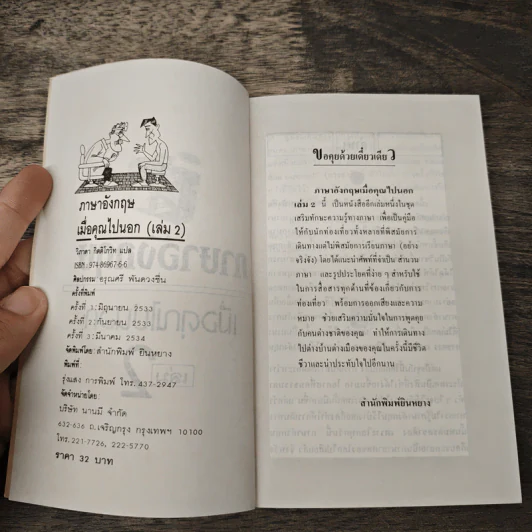 ภาษาอังกฤษ
เมื่อคุณไปนอก (เล่ม 2)
วิภาดา กิตติโกวิท แปล
ISBN : 974-86967-6-6
ศิลปกรรม : อรุณศรี พันดวงชื่น
ครั้งที่พิมพ์
ครั้งที่ 1 : มิถุนายน 2533
ครั้งที่ 2 : กันยายน 2533
ครั้งที่ 3 : มีนาคม 2534
จัดพิมพ์โดย : สำนักพิมพ์ ยินหยาง
พิมพ์ที่ :
รุ่งแสง การพิมพ์ โทร. 437-2947
จัดจำหน่ายโดย :
บริษัท นานมี จำกัด
632-636 ถ.เจริญกรุง กรุงเทพฯ 10100
โทร. 221-7726, 222-5770
ราคา 32 บาท
ขอคุยด้วยเดี๋ยวเดียว
ภาษาอังกฤษเมื่อคุณไปนอก
เล่ม 2 นี้ เป็นหนังสืออีกเล่มหนึ่งในชุด
เสริมทักษะความรู้ทางภาษา เพื่อเป็นคู่มือ
ให้กับนักท่องเที่ยวทั้งหลายที่พิสมัยการ
เดินทางแต่ไม่พิสมัยการเรียนภาษา (อย่าง
จริงจัง) โดยได้แนะนำศัพท์ที่จำเป็น สำนวน
ภาษา และรูปประโยคที่ง่าย ๆ สำหรับใช้
ในการสื่อสารทุกด้านที่ข้องเกี่ยวกับการ
ท่องเที่ยว พร้อมการออกเสียงและความ
หมาย ช่วยเสริมความมั่นใจในการพูดคุย
กับคนต่างชาติของคุณ ทำให้การเดินทาง
ไปต่างบ้านต่างเมืองของคุณในครั้งนี้มีชีวิต
ชีวาและน่าประทับใจไปอีกนาน
สำนักพิมพ์ยินหยาง